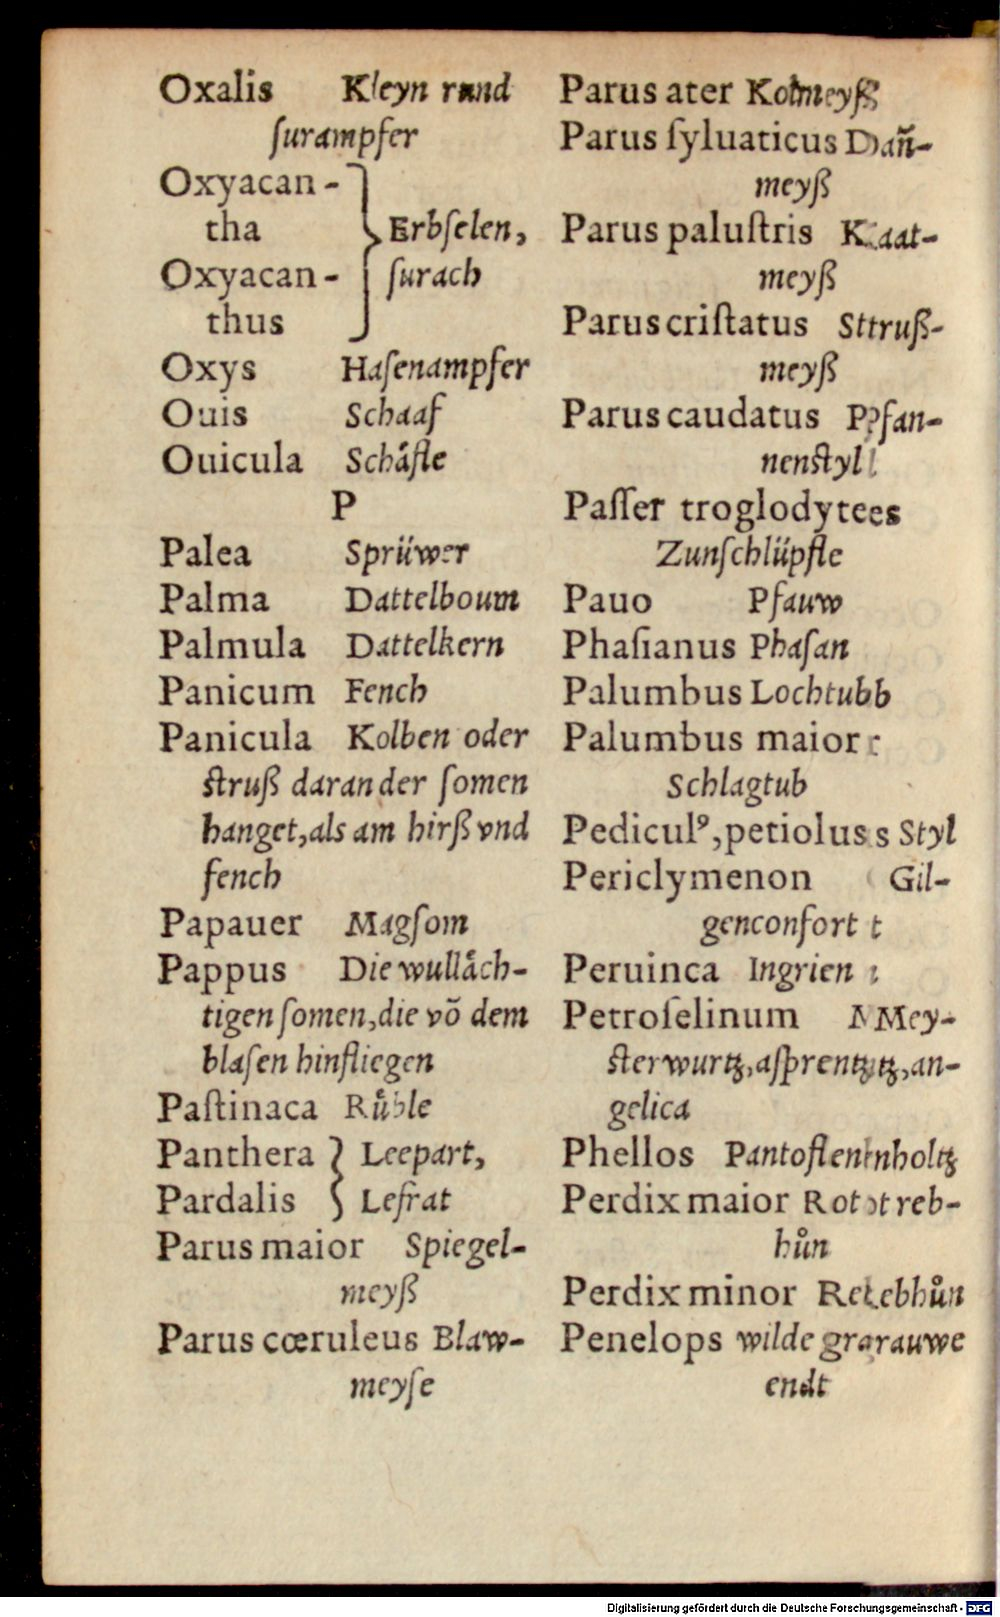 Oxalis Kleyn rund
ſurampfer
Oxyacan-
tha
Erbſelen,
Oxyacan-
ſurach
thus
Oxys Haſenampfer
Ouis Schaaf
Ouicula Schåfle
P
Palea Sprüwer
Palma Dattelboum
Palmula Dattelkern
Panicum Fench
Panicula Kolben oder
ſtruß daran der ſomen
hanget, als am hirß vnd
fench
Papauer Magſom
Pappus Die wullåch-
tigen ſomen, die võ dem
blaſen hinfliegen
Paſtinaca Růble
Panthera } Leepart,
Pardalis } Lefrat
Parus maior Spiegel-
meyß
Parus cœruleus Blaw-
meyſe
Parus ater Kolmeyß
Parus ſyluaticus Dañ-
meyß
Parus paluſtris Kaat-
meyß
Parus criſtatus Struß-
meyß
Parus caudatus Pfan-
nenſtyl
Paſſer troglodytes
Zunſchlüpfle
Pauo Pfauw
Phaſianus Phaſan
Palumbus Lochtubb
Palumbus maior
Schlagtub
Pediculꝰ, petiolus Styl
Periclymenon Gil-
genconfort
Peruinca Ingrien
Petroſelinum Mey-
ſterwurtz, aſprentz, an-
gelica
Phellos Pantoflenholtz
Perdix maior Rot reb-
hůn
Perdix minor Rebhůn
Penelops wilde grauwe
endt
Digitalisierung gefördert durch die Deutsche Forschungsgemeinschaft - DFG